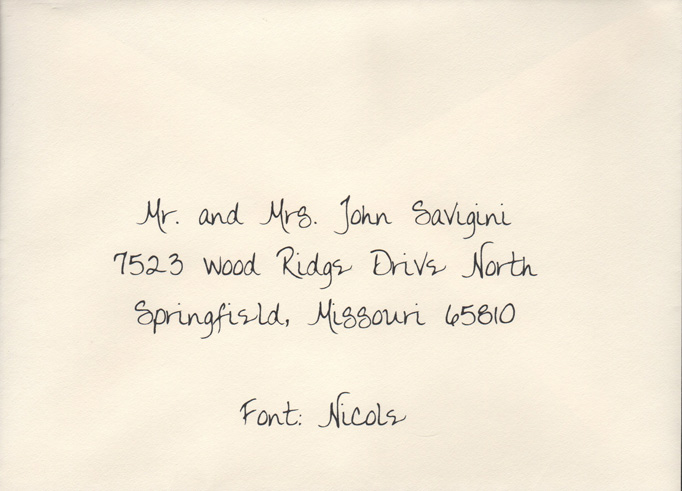 Mr. and Mrs. John Savigini
7523 Wood Ridge Drive North
Springfield, Missouri 65810
Font: Nicole